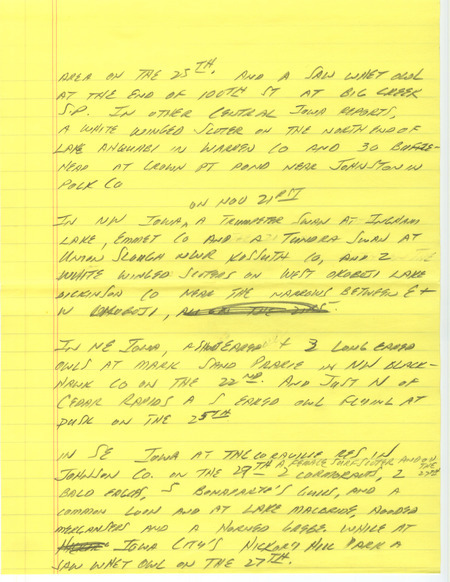 AREA ON THE 25TH. AND A SAW WHET OWL
AT THE END OF 100TH ST AT BIG CREEK
S.P. IN OTHER CENTRAL IOWA REPORTS,
A WHITE WINGED SCOTER ON THE NORTH END OF
LAKE AHQUABI IN WARREN CO AND 30 BUFFLE-
HEAD AT CROWN PT POND NEAR JOHNSTON IN
POLK CO
ON NOV 21ST
IN NW IOWA, A TRUMPETER SWAN AT INGHAM
LAKE, EMMET CO AND A TUNDRA SWAN AT
UNION SLOUGH NWR KOSSUTH CO, AND 2
WHITE WINGED SCOTERS ON WEST OKOBOJI LAKE
DICKINSON CO NEAR THE NARROWS BETWEEN E +
W OKOBOJI,
IN NE IOWA, A SHORT EARED + 3 LONG EARED
OWLS AT MARK SAND PRARIE IN NW BLACK-
HAWK CO ON THE 22ND. AND JUST N OF
CEDAR RAPIDS A S EARED OWL FLYING AT
DUSK ON THE 25TH
IN SE IOWA AT THE CORALVILLE RES IN
JOHNSON CO. ON THE 29TH A FEMALE SURF SCOTER AND ON THE
27TH 2 CORMORANTS, 2
BALD EAGLES, 5 BONAPARTE'S GULLS, AND A
COMMON LOON AND AT LAKE MACBRIDE, HOODED
MERGANSERS AND A HORNED GREBE. WHILE AT
IOWA CITY'S HICKORY HILL PARK A
SAW WHET OWL ON THE 27TH.